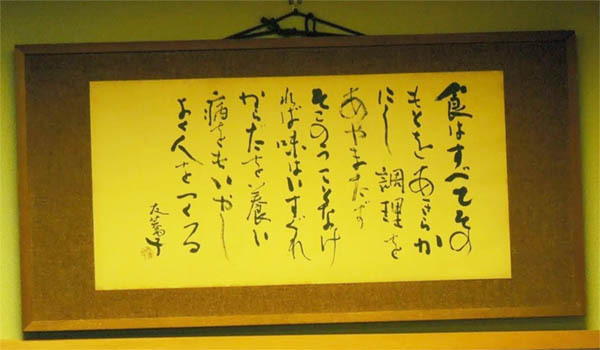 食はすべてその
もとをあきらか
にし調理を
あやまたず
そこのうことなけ
れば味はいすぐれ
からだを養い
病をもいやし
よく人をつくる
友萬